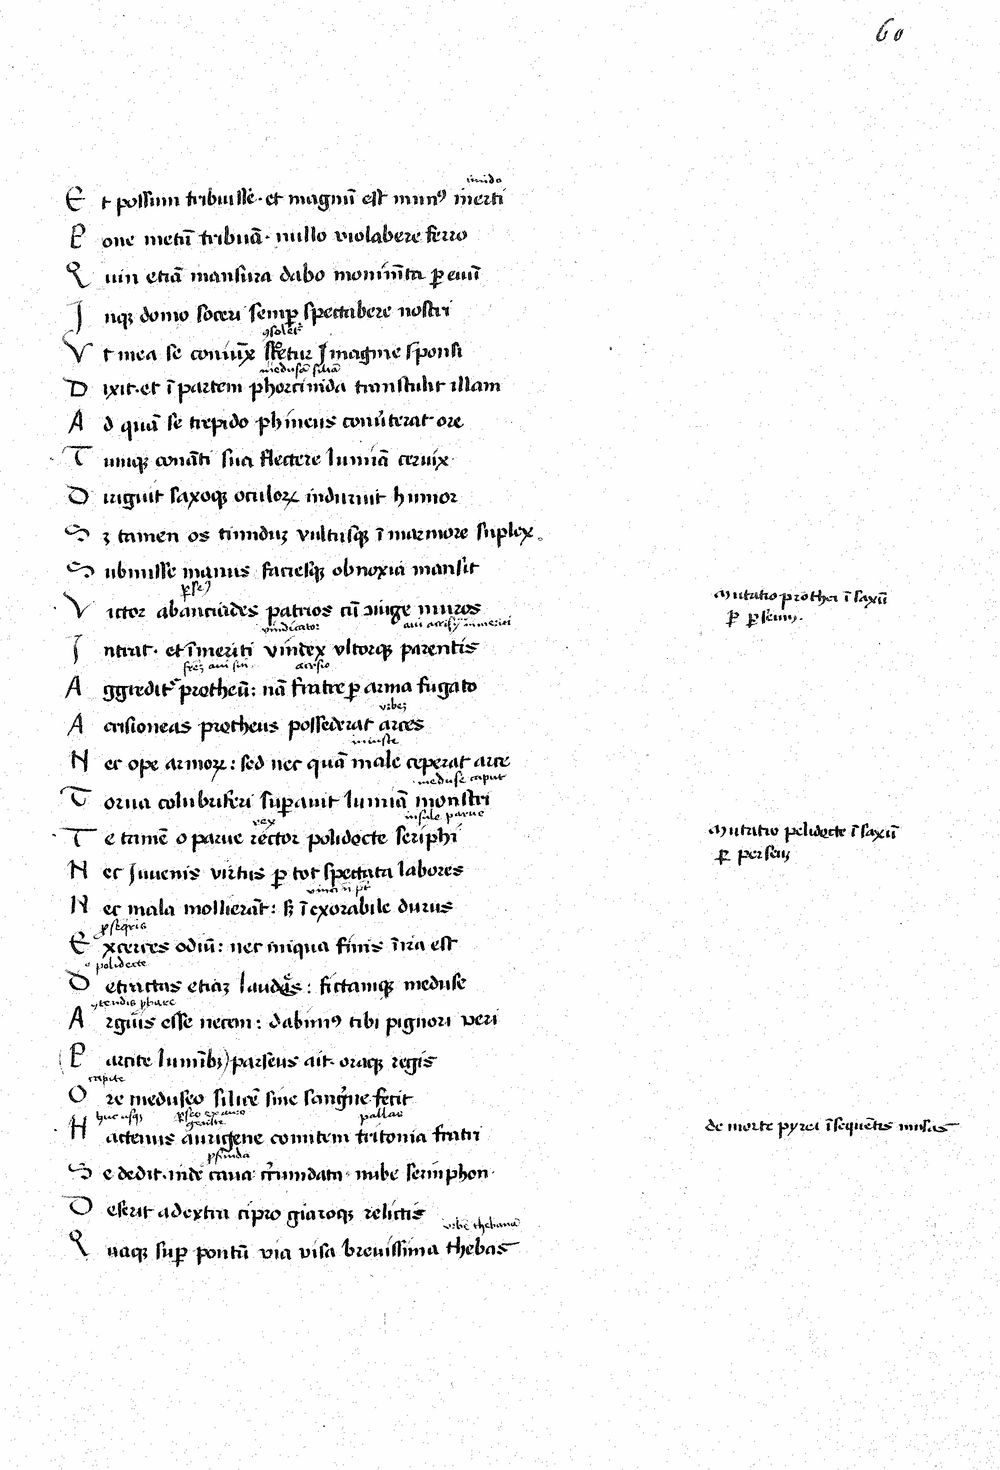 60
timido
Et possum tribuisse · et magnũ est munꝰ inerti
Pone metũ tribuã · nullo violabere ferro
Quin etiã mansura dabo monim̃ta ꝑ euũ
Inqꝫ domo soceri semꝑ spectabere nostri
ꝯsolet᷑
Vt mea se coniũx soletur Imagine sponsi
medusã filiã
Dixit · et ĩ partem phorcinida transtulit illam
Ad quã se trepido phineus conũterat ore
Tunqꝫ conãti sua flectere lumiã ceruix
Diriguit saxoqꝫ oculoꝝ induruit humor
Sꝫ tamen os timiduꝫ vultusqꝫ ĩ marmore suplex
Submisse manus faciesqꝫ obnoxia mansit
ꝑseꝰ
Victor abantiades patrios cũ ꝯiuge muros
vindicator aui acrisij inmeriti
Intrat · et ĩmeriti vindex vltorqꝫ parentis
acrisio
Aggredit᷑ protheũ : nã fratre ꝑ arma fugato
vrbeꝫ
Acrisioneas protheus possederat arces
iniuste
Nec ope armoꝝ : sed nec quã male ceperat arce
meduse caput
Torua colubriferi suꝑauit lumiã monstri
rex insule parue
Te tamẽ o parue rector polidecte seriphi
Nec Iuuenis virtus ꝑ tot spectata labores
Nec mala mollierãt : sꝫ ĩexorabile durus
ꝑseq̃ris
Exerces odiũ : nec iniqua finis ĩ ira est
o polidecte
Detractas etiaꝫ laudes : fictamqꝫ meduse
Arguis esse necem : dabimꝰ tibi pignori veri
Parcite luminĩbꝫ) parseus ait · oraqꝫ regis
capite
Ore meduseo silicẽ sine sangũne fecit
huc usqꝫ ꝑseo ex auro genite pallas
Hactenus aurigene comitem tritonia fratri
Se dedit · inde caua circumdata · nube seriuphon ·
Deserit a dextra cipro giaroqꝫ relictis
vrbẽ thebanã
Quaqꝫ suꝑ pontũ via visa breuissima thebas
Mutatio prothei ĩ saxũ
ꝑ ꝑseum.
Mutatio polidecte ĩ saxũ
ꝑ perseuꝫ
de morte pyrei ĩsequẽtis musas